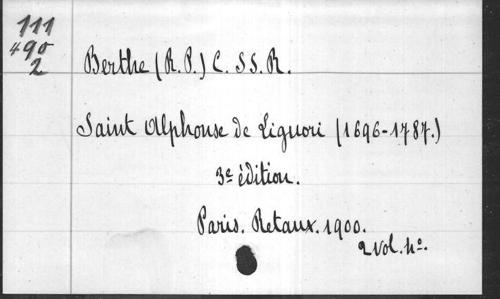 111
490
2
Berthe (R. P.) C. SS. R.
Saint Alphonse de Liguori (1696-1787.)
3e édition.
Paris. Retaux. 1900.
2 vol. 4o.